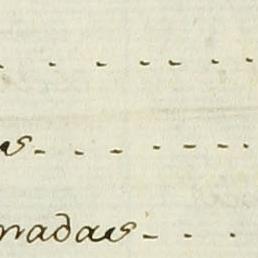 . - - - - . -
as - - - - - - -
nadas - - -